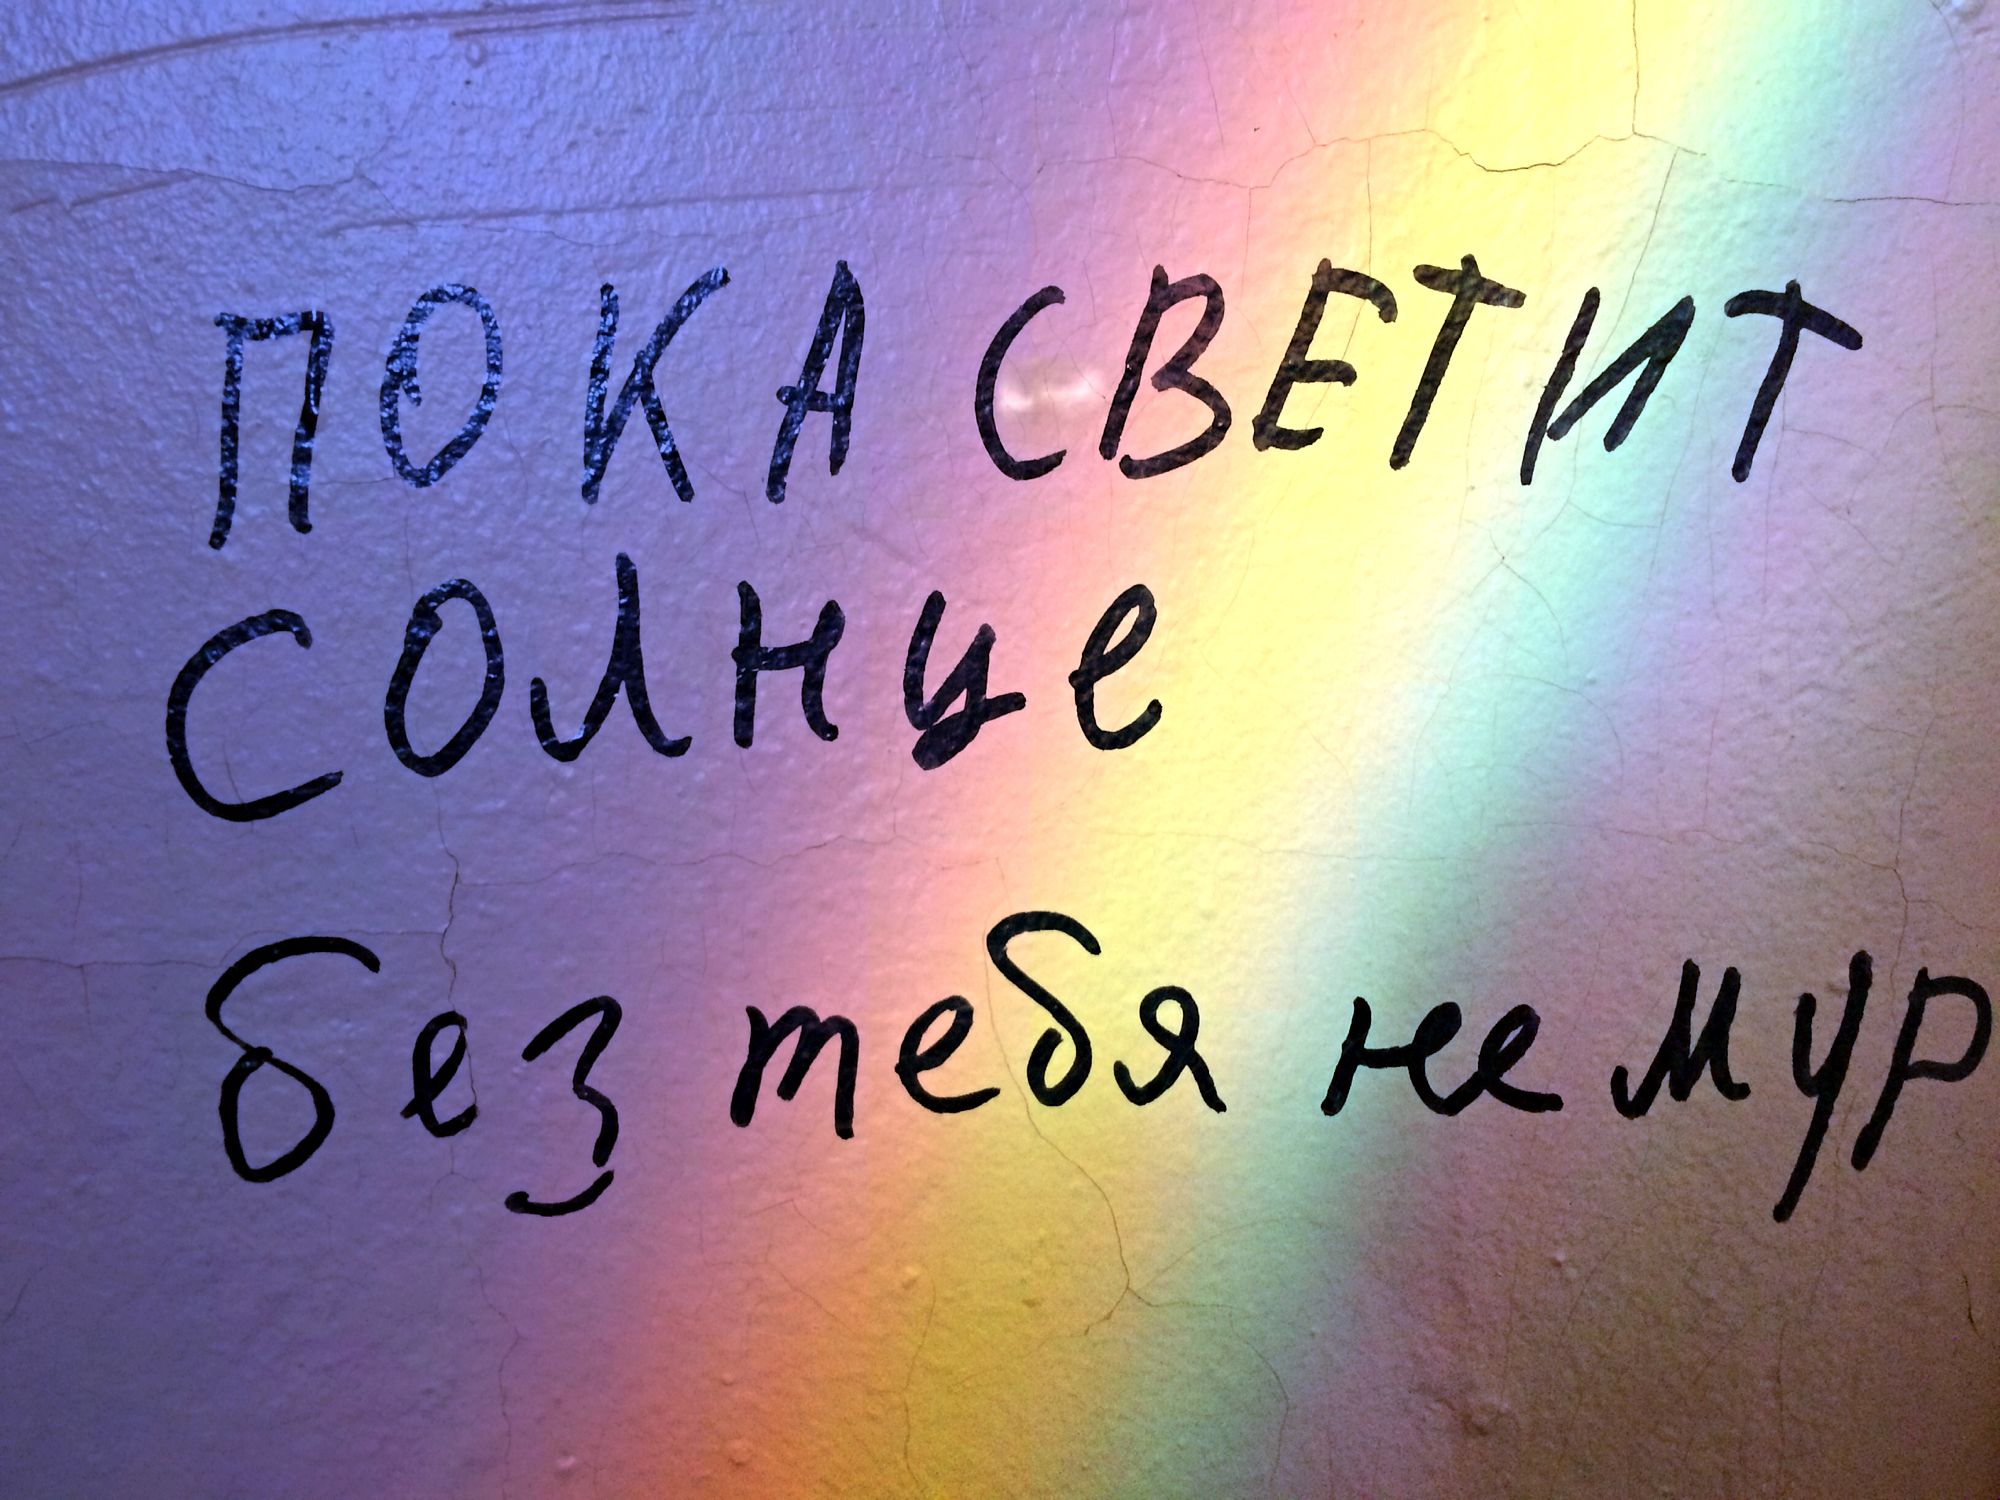 ПОКА СВЕТИТ
Солнце
без тебя не мур